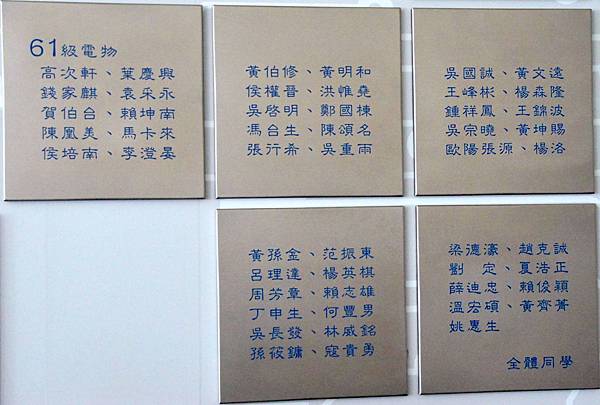 61級電物
高次軒、葉慶興
錢家麒、袁采永
賀伯台、賴坤南
陳鳳美、馬卡來
侯培南、李澄晏
黃伯修、黃明和
侯權晉、洪惟堯
吳啓明、鄭國棟
馮台生、陳頌名
張行希、吳重雨
吳國誠、黃文遠
王峰彬、楊森隆
鍾祥鳳、王錦波
吳宗曉、黃坤賜
歐陽張源、楊洛
黃孫金、范振東
呂理達、楊英棋
周芳章、賴志雄
丁申生、何豐男
吳長發、林威銘
孫筱鏞、寇貴勇
梁德濠、趙克誠
劉　定、夏浩正
薛迪忠、賴俊穎
溫宏碩、黃齊菁
姚惠生
全體同學